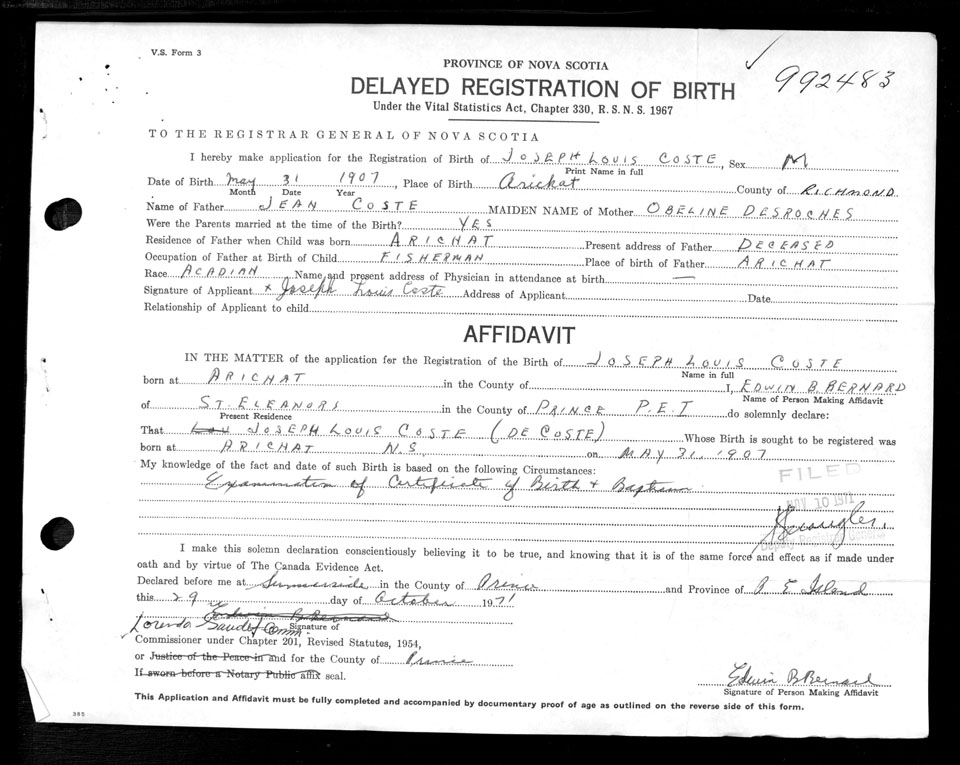 V.S. Form 3
992483
PROVINCE OF NOVA SCOTIA
DELAYED REGISTRATION OF BIRTH
Under the Vital Statistics Act, Chapter 330, R.S.N.S. 1967
TO THE REGISTRAR GENERAL OF NOVA SCOTIA
I hereby make application for the Registration of Birth of JOSEPH LOUIS COSTE, Sex M
Print Name in full
Date of Birth May 31 1907, Place of Birth Arichat County of RICHMOND
Month Date Year
Name of Father JEAN COSTE MAIDEN NAME of Mother OBELINE DESROCHES
Were the Parents married at the time of the Birth? YES
Residence of Father when Child was born ARICHAT Present address of Father DECEASED
Occupation of Father at Birth of Child FISHERMAN Place of birth of Father ARICHAT
Race ACADIAN Name and present address of Physician in attendance at birth —
Signature of Applicant x Joseph Louis Coste Address of Applicant Date
Relationship of Applicant to child
AFFIDAVIT
IN THE MATTER of the application for the Registration of the Birth of JOSEPH LOUIS COSTE
Name in full
born at ARICHAT in the County of I, EDWIN B. BERNARD
Name of Person Making Affidavit
of ST. ELEANORS in the County of PRINCE P.E.I do solemnly declare:
Present Residence
That JOSEPH LOUIS COSTE (DE COSTE) Whose Birth is sought to be registered was
born at ARICHAT N.S. on MAY 31, 1907
My knowledge of the fact and date of such Birth is based on the following Circumstances:
Examination of Certificate of Birth + Baptism
FILED
NOV 10 1971
Deputy Registrar General
I make this solemn declaration conscientiously believing it to be true, and knowing that it is of the same force and effect as if made under
oath and by virtue of The Canada Evidence Act.
Declared before me at Summerside in the County of Prince and Province of P. E Island
this 29 day of October 1971
Edwin B Bernard
Signature of
Commissioner under Chapter 201, Revised Statutes, 1954,
or Justice of the Peace in and for the County of Prince
If sworn before a Notary Public affix seal.
Edwin B Bernard
Signature of Person Making Affidavit
This Application and Affidavit must be fully completed and accompanied by documentary proof of age as outlined on the reverse side of this form.
385